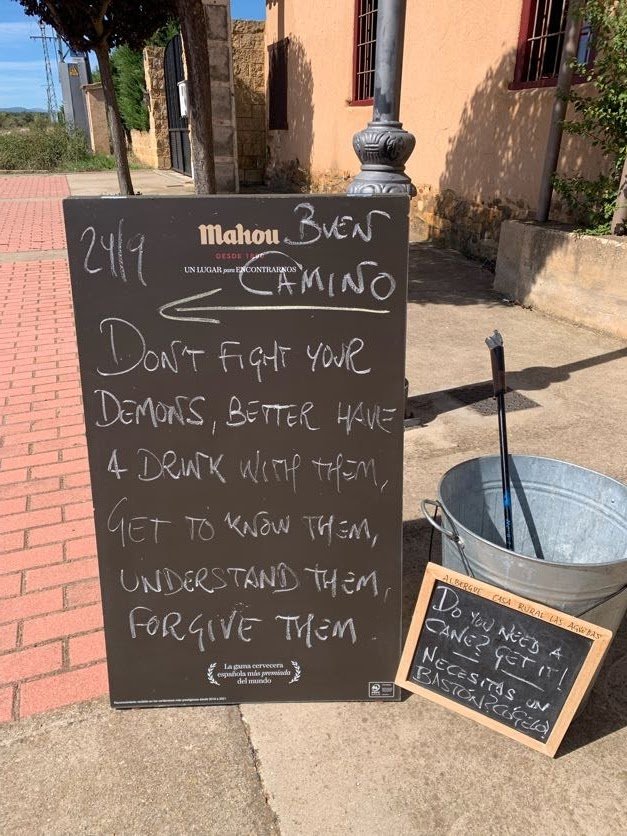 24/9
Mahou
DESDE 1890
UN LUGAR para ENCONTRARNOS
BUEN
CAMINO
DON'T FIGHT YOUR
DEMONS, BETTER HAVE
A DRINK WITH THEM,
GET TO KNOW THEM,
UNDERSTAND THEM,
FORGIVE THEM.
La gama cervecera
española más premiada
del mundo
ALBERGUE CASA RURAL LAS AGUEDAS
DO YOU NEED A
CANE? GET IT!
NECESITAS UN
BASTÓN? CÓGELO!